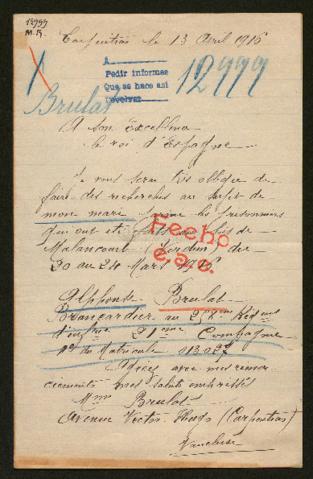 12999
M.R.
Carpentras le 13 Avril 1916
A
Pedir informes
Que se hace asi
Devolver
12999
Brulat
A son Excellence
le roi d'Espagne
Je vous serai très obligée de
faire des recherches au sujet de
mon mari parmi les prisonniers
qui ont été faits au bois de
Malancourt (Verdun) du
20 au 24 Mars 1916
Fecho
e.a.c.
Alphonse Brulat
Brancardier au 258me Régiment
d'inftrie 21eme Compagnie
No de Matricule
Agréez avec mes remerciements
mes saluts empressés
Mme Brulat
Avenue Victor Hugo (Carpentras)
Vaucluse